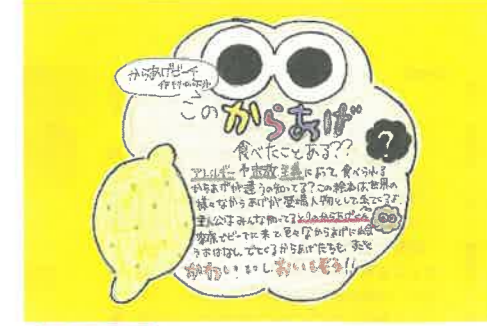 からあげビーチ
この からあげ
食べたことある??
?
アレルギーや宗教主義によって食べられる
からあげが違うの知ってる?この絵本は世界の
様々なからあげが登場人物として出てくるよ
主人公はみんな知ってるとりのからあげくん
家族でビーチに来て色々なからあげに出会
うおはなし。でてくるからあげたちも、すごく
かわいいし おいしそう!!